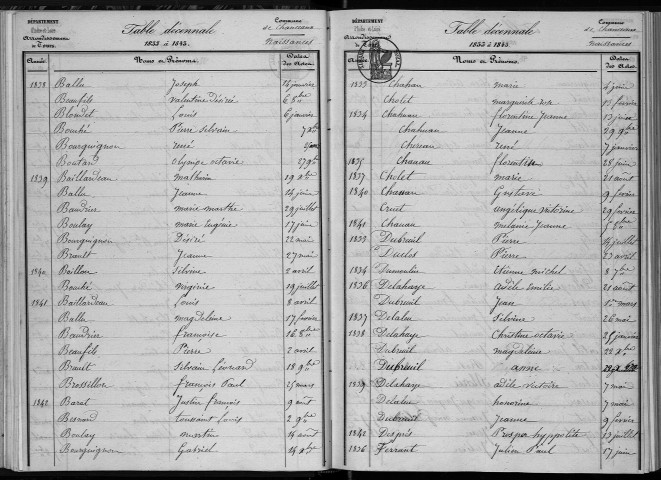 DÉPARTEMENT
d'Indre et Loire
Arrondissement
de Tours.
Table décennale
1833 à 1843.
Commune
de Chanceaux
Naissances
Année
Noms et Prénoms.
Dates des Actes.
1838 Ballu Joseph 14 janvier
Beaufils Valentine Désirée 6 8bre
Blondel Louis 6 janvier
Bouché Pierre Silvain 7 Xbre
Bourguignon rené
Boutard olympe octavie 27 9bre
1839 Baillardeau mathurin 19 Xbre
Ballu Jeanne 14 juin
Baudrier marie marthe 29 juillet
Boulay marie Eugénie 17 juin
Bourguignon Désiré 22 mai
Brault Jeanne 27 mai
1840 Baillou Silvine 2 avril
Bouché virginie 29 juillet
1841 Baillardeau Louis 8 avril
Ballu magdeleine 17 février
Baudrier françoise 16 8bre
Beaufils Pierre 2 avril
Brault Silvain 18 9bre
Brossillon françois Paul 25 mars
1842 Barat Justin françois 9 aout
Besnard toussaint Louis 2 9bre
Boulay 14 aout
Bourguignon Gabriel 24 Xbre
DÉPARTEMENT
d'Indre et Loire
Arrondissement
de Tours.
Table décennale
1833 à 1843.
Commune
de Chanceaux
Naissances
Année
Noms et Prénoms.
Dates des Actes.
1833 Chahuau marie 4 juin
Cholet 13 février
1834 Chahuau florentine Jeanne 13 juin
Chahuau Jeanne 29 9bre
Chereau rené 7 janvier
1835 Chauau florentin 28 juin
1837 Cholet marie 21 aout
1840 Chauau Gustave 9 février
Cruet angélique victorine 29 février
1841 Chauau mélanie Jeanne 5 8bre
1833 Dubreuil Pierre 14 juillet
Duclos Pierre 23 avril
1834 Dumoulin Etienne michel 8 7bre
1836 Delahaye adèle émilie 21 aout
Dubreuil Jean 1er mars
1837 Delalu Silvine 26 mai
1838 Delahaye Christine octavie 25 janvier
Dubreuil magdeleine 22 Xbre
Dubreuil anne
1839 Delahaye adèle victoire 7 mai
Delalu honorine 7 mai
Dubreuil Jeanne 9 février
1841 Després Prosper hyppolite 13 juillet
1836 Ferrant Julien Paul 17 juin